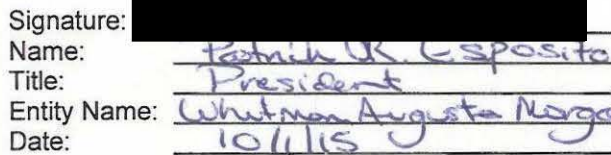 Signature:
Name: Patrick R. Esposito
Title: President
Entity Name: Whitman Augusta Morga
Date: 10/1/15